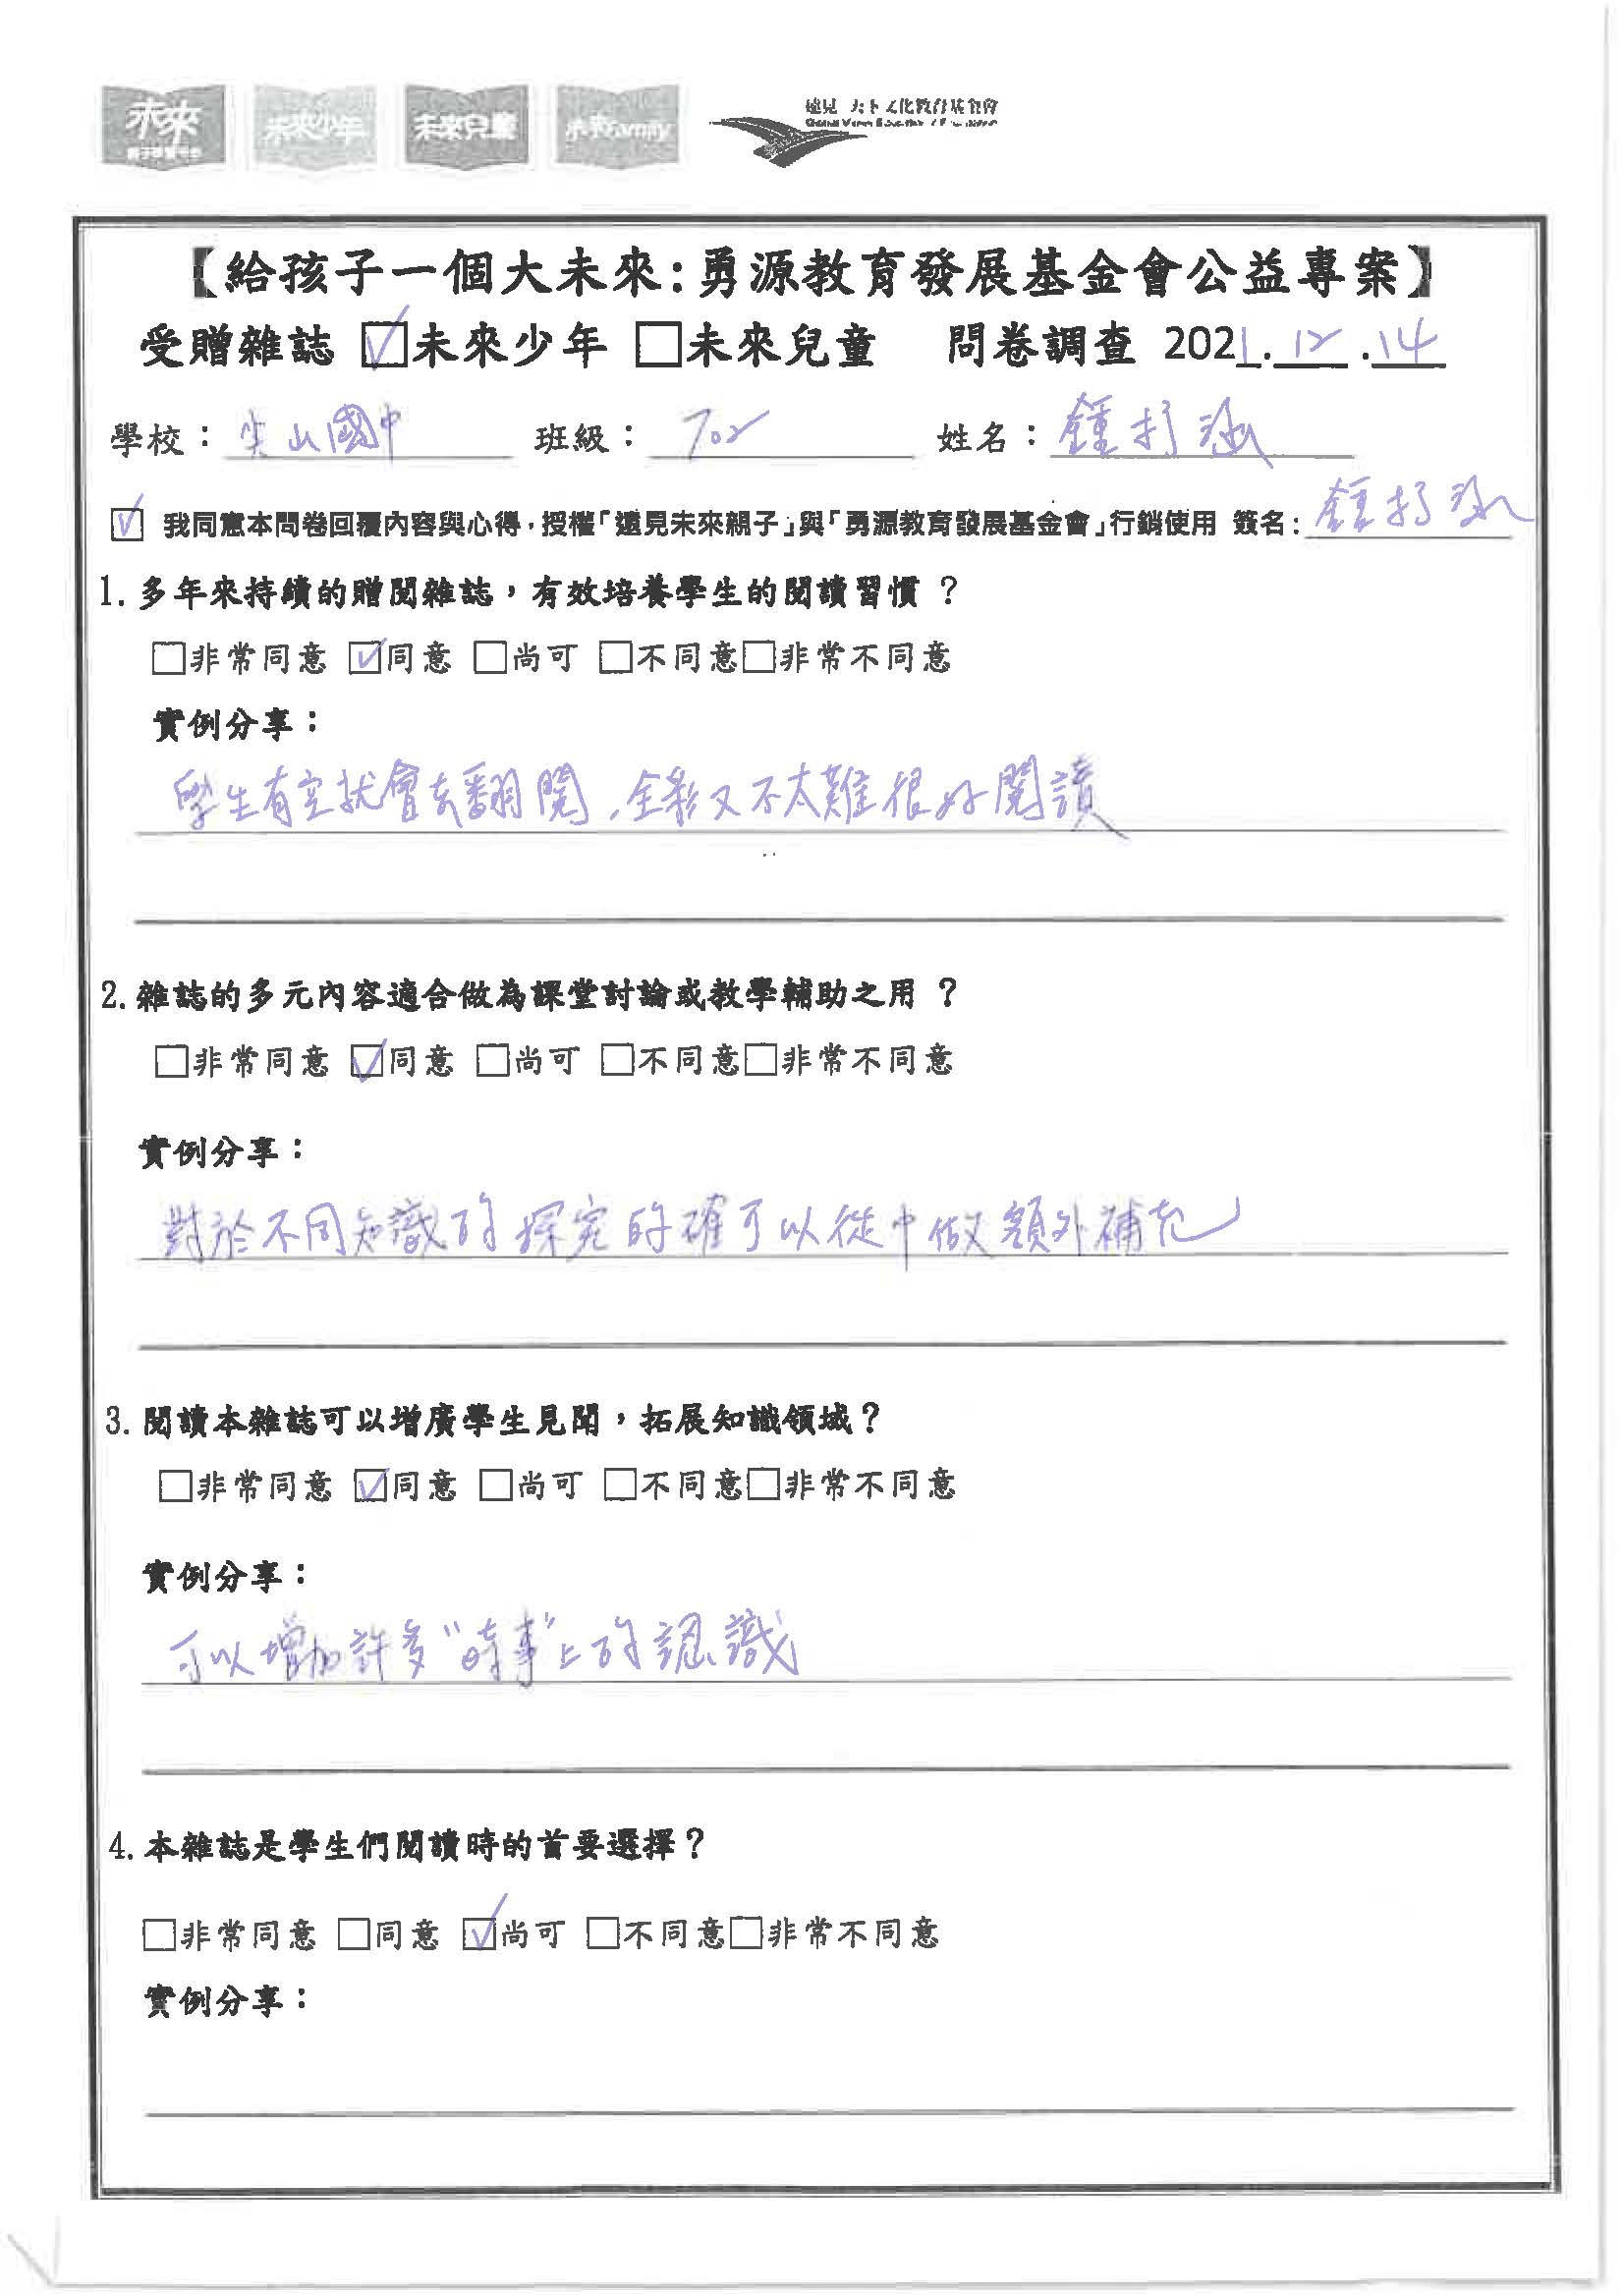 未來
未來少年
未來兒童
未來Family
遠見 天下文化教育基金會
【給孩子一個大未來:勇源教育發展基金會公益專案】
受贈雜誌 ☑未來少年 □未來兒童 問卷調查 2021.12.14
學校：尖山國中 班級：702 姓名：鍾抒涵
☑ 我同意本問卷回覆內容與心得，授權「遠見未來親子」與「勇源教育發展基金會」行銷使用 簽名：鍾抒涵
1. 多年來持續的贈閱雜誌，有效培養學生的閱讀習慣？
□非常同意 ☑同意 □尚可 □不同意□非常不同意
實例分享：
學生有空就會去翻閱，全彩又不太難很好閱讀
2. 雜誌的多元內容適合做為課堂討論或教學輔助之用？
□非常同意 ☑同意 □尚可 □不同意□非常不同意
實例分享：
對於不同知識的探究的確可以從中做額外補充
3. 閱讀本雜誌可以增廣學生見聞，拓展知識領域？
□非常同意 ☑同意 □尚可 □不同意□非常不同意
實例分享：
可以增加許多"時事"上的認識
4. 本雜誌是學生們閱讀時的首要選擇？
□非常同意 □同意 ☑尚可 □不同意□非常不同意
實例分享：